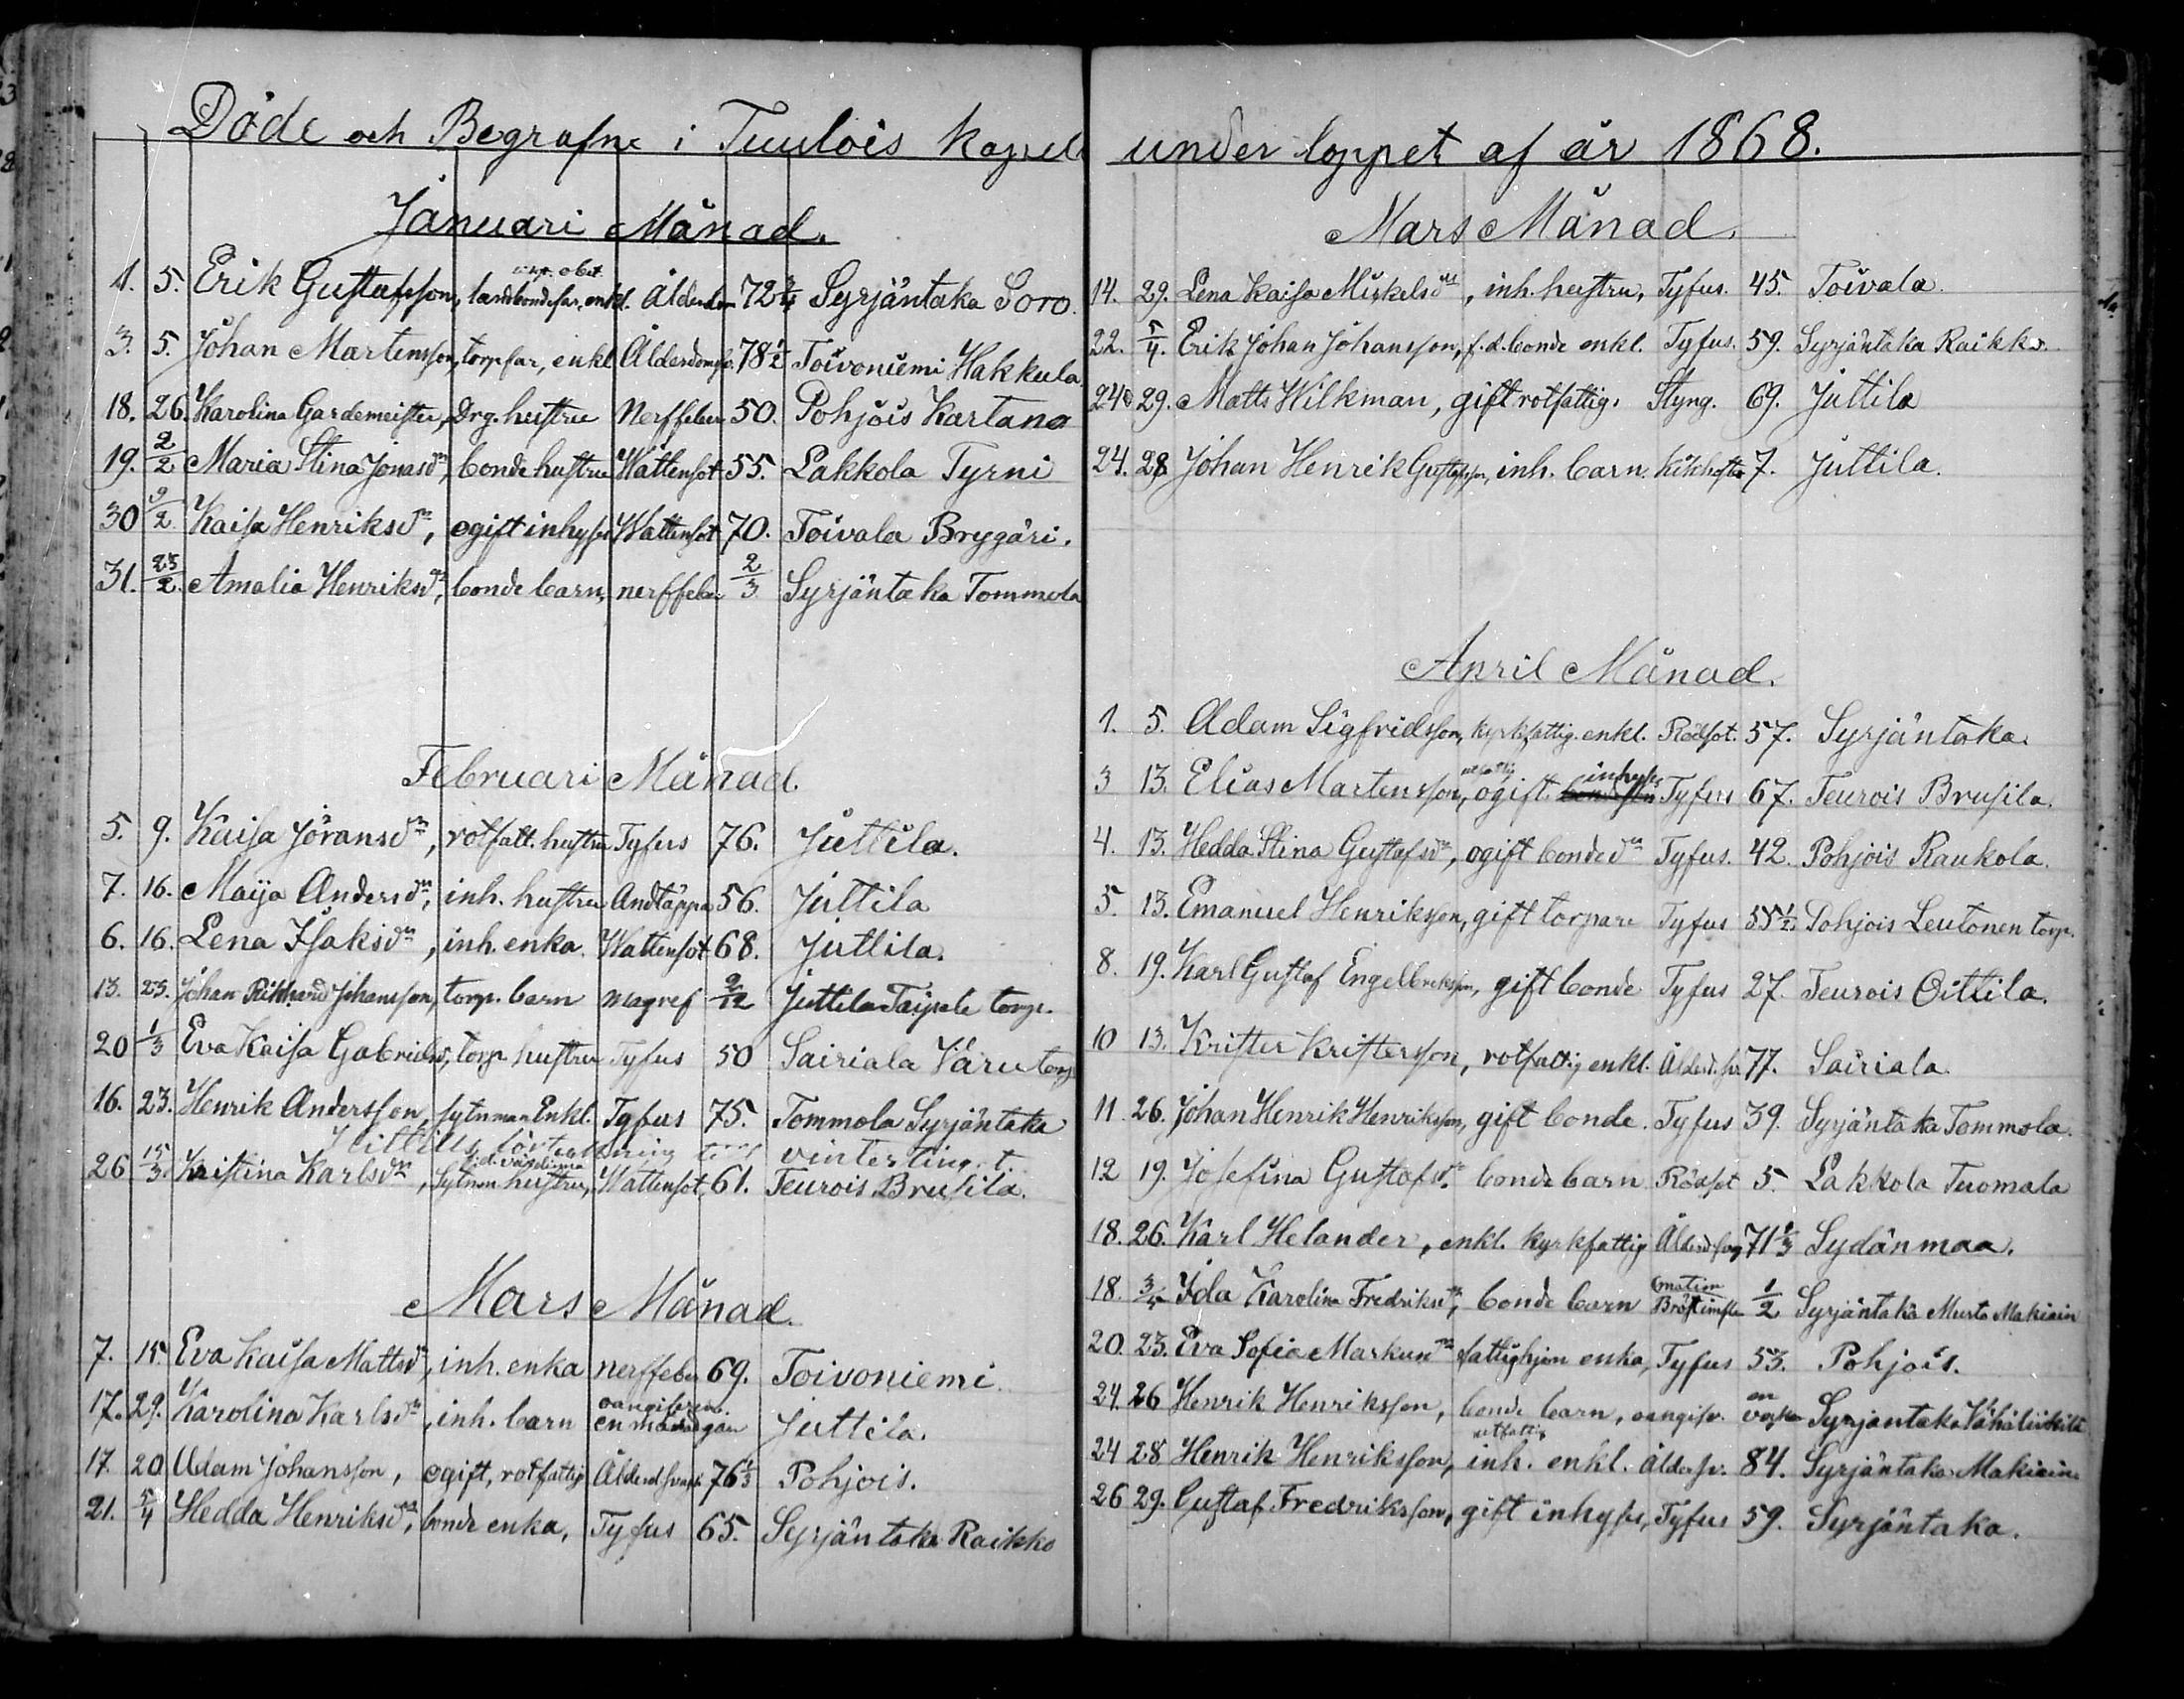 Döde och Begrafne i Tuulois Kapell
Januari Månad.
1. 5. Erik Gustafsson, landbondefar, enkl. Ålderdom 72 Syrjäntaka Soro.
3. 5. Johan Martensson, torp.far, enkl. Ålderdoms 78½ Toivoniemi Hakkula
18. 26. Karolina Gardemeister, Drg. hustru Nerffeber 50. Pohjois Kartano
19. 2/2 Maria Stina Jonasdr, bonde hustru Wattensot 55. Lakkola Tyrni
30 9/2 Kaisa Henriksdr, ogift inhyses Wattensot 70. Toivala Brygäri.
31. 23/2. Amalia Henriksdr, bonde barn, nerffeber 2/3 Syrjäntaka Tommola
Februari Månad.
5. 9. Kaisa Jöransdr, rotfatt. hustru Tyfus 76. Juttila.
7. 16. Maija Andersdr, inh. hustru Andtäppa 56. Juttila
6. 16. Lena Isaksdr, inh. enka. Wattensot 68. Juttila.
13. 23. Johan Rikhard Johansson, torp. barn magref 9/12 Juttila Taipale torp.
20 1/3 Eva Kaisa Gabrielsd, torp hustru Tyfus 50 Sairiala Väru torp
16. 23. Henrik Andersson, sytnman Enkl. Tyfus 75. Tommola Syrjäntaka
26 15/3. Kristina Karlsdr, Sytnm hustru, Wattensot, 61. Teurois Brusila.
Mars Månad.
7. 15. Eva Kaisa Mattsdr, inh. enka nerffeber 69. Toivoniemi.
oangifven.
17. 29. Karolina Karlsdr, inh. barn en månad gam Juttila.
17. 20 Adam Johansson, ogift, rotfattig Ålderd.svagh. 76⅓ Pohjois.
21. 5/4 Hedda Henriksdr, bonde enka, Tyfus 65. Syrjäntaka Raikko
under loppet af år 1868.
Mars Månad.
14. 29. Lena Kaisa Mickelsdr, inh. hustru, Tyfus. 45. Toivala.
22. 5/4. Erik Johan Johansson, f.d. bonde enkl. Tyfus. 59. Syrjäntaka Raikko.
24 29. Matts Wilkman, gift rotfattig. Styng. 69. Juttila
24. 28 Johan Henrik Gustafsson, inh. barn. Kikhosta 7. Juttila.
April Månad.
1. 5. Adam Sigfridsson, kyrkfattig. enkl. Rödsot. 57. Syrjäntaka.
inhyses
3 13. Elias Martensson, ogift. Tyfus 67. Teurois Brusila.
4. 13. Hedda Stina Gustafsdr, ogift bondedr Tyfus. 42. Pohjois Raukola.
5. 13. Emanuel Henriksson, gift torpare Tyfus 55½ Pohjois Leutonen torp.
8. 19. Karl Gustaf Engelbrektsson, gift bonde Tyfus 27. Teurois Oittila.
10 13. Krister Kristersson, rotfattig enkl. Ålderd.sv 77. Sairiala.
11 26. Johan Henrik Henriksson, gift bonde. Tyfus 39. Syrjäntaka Tommola.
12 19. Josefina Gustafsdr. bonde barn Rödsot 5. Lakkola Tuomala
18. 26. Karl Helander, enkl. kyrkfattig Ålderd.svag 71⅔ Sydänmaa.
mation
18. 3/5 Ida Karolina Fredriksdr, bonde barn Bröstinfla ½ Syrjäntaka Musta Makiain
20. 23. Eva Sofia Markusdr fattighjon enka, Tyfus 53. Pohjois.
en
24. 26 Henrik Henriksson, bonde barn, oangifv. vecka Syrjäntaka Vähäliikilä
rotfattig
24 28 Henrik Henriksson, inh. enkl. Ålder.sv. 84. Syrjäntaka Makiain
26 29. Gustaf Fredriksson, gift inhyses, Tyfus 59. Syrjäntaka.